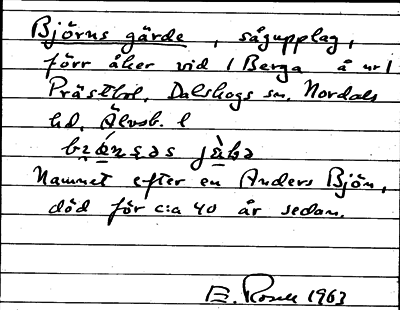 Björns gärde, sågupplag,
förr åker vid 1 Berga å nr 1
Prästbol. Dalskogs sn. Nordals
hd. Älvsb. l
Namnet efter en Anders Björn,
död för c:a 40 år sedan.
E. Rosell 1963